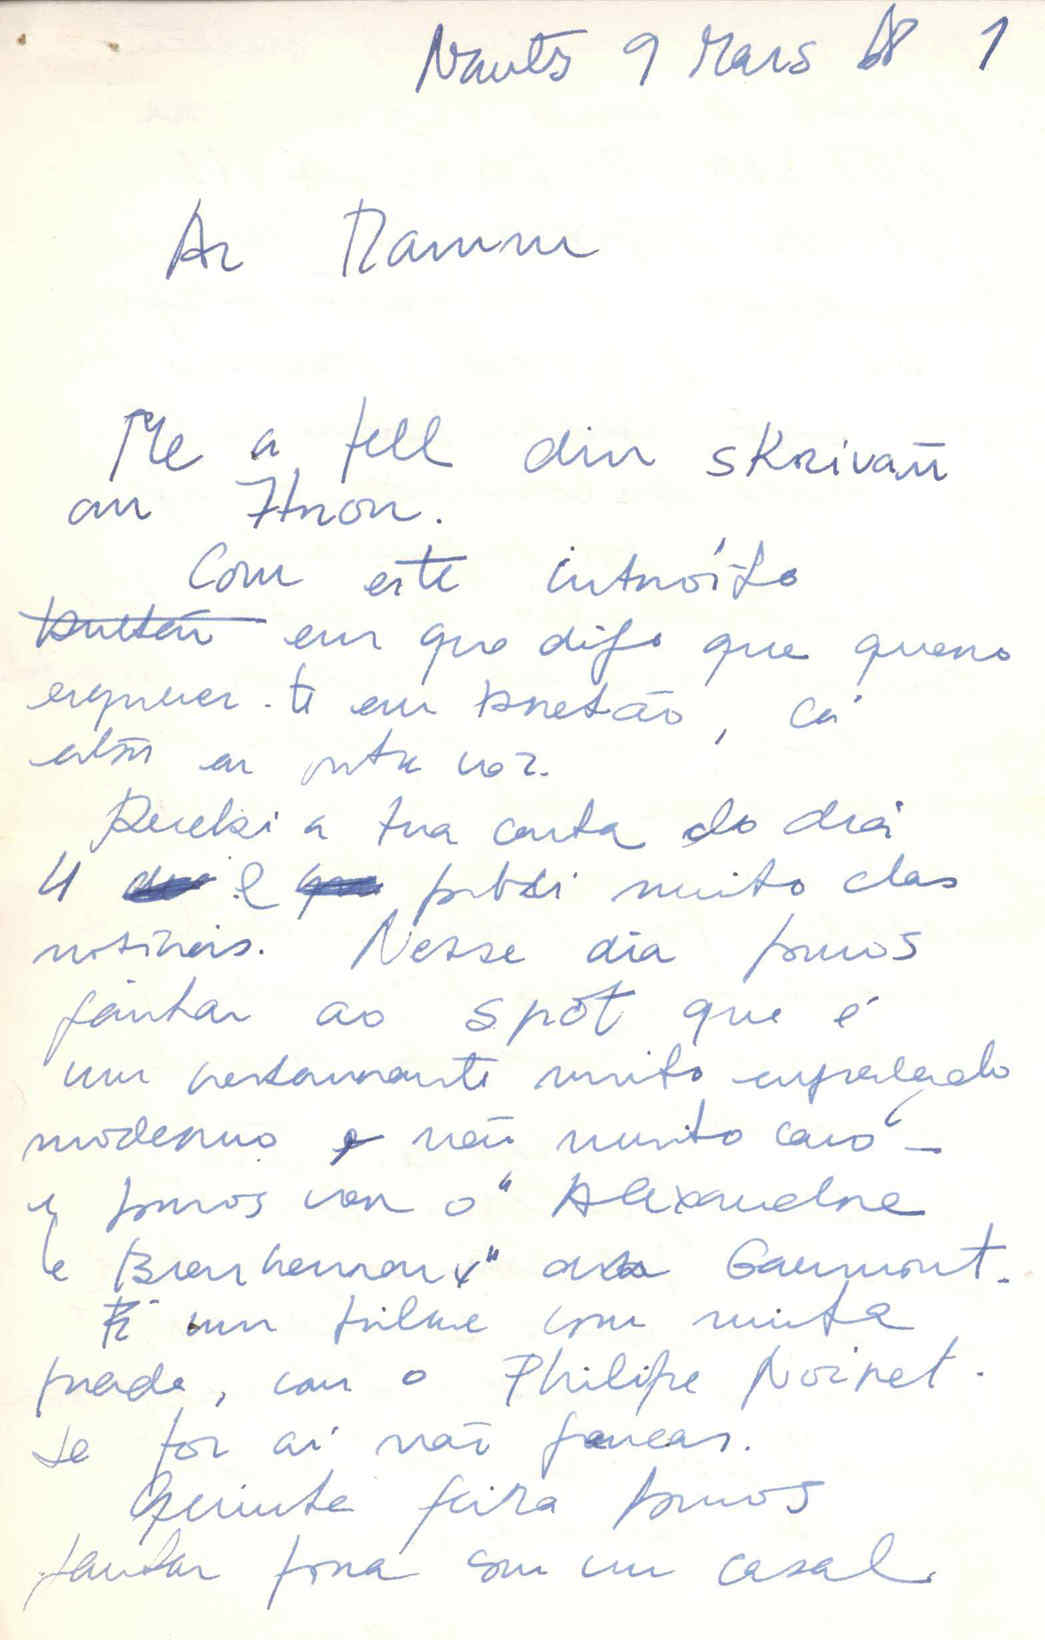 Nantes 9 Mars 68 1
Ar Mamm
Me a fell din skrivañ
an Hnon.
Com este intróito
bretão em que digo que quero
escrever-te em bretão, cá
estou eu outra vez.
Recebi a tua carta do dia
4 e gostei muito das
notícias. Nesse dia fomos
jantar ao Spot que é
um restaurante muito engraçado
moderno e não muito caro -
e fomos ver o "Alexandre
le Bienheureux" ao Gaumont.
É um filme com muita
piada, com o Philipe Noiret.
Se for aí não percas.
Quinta feira fomos
jantar fora com um casal